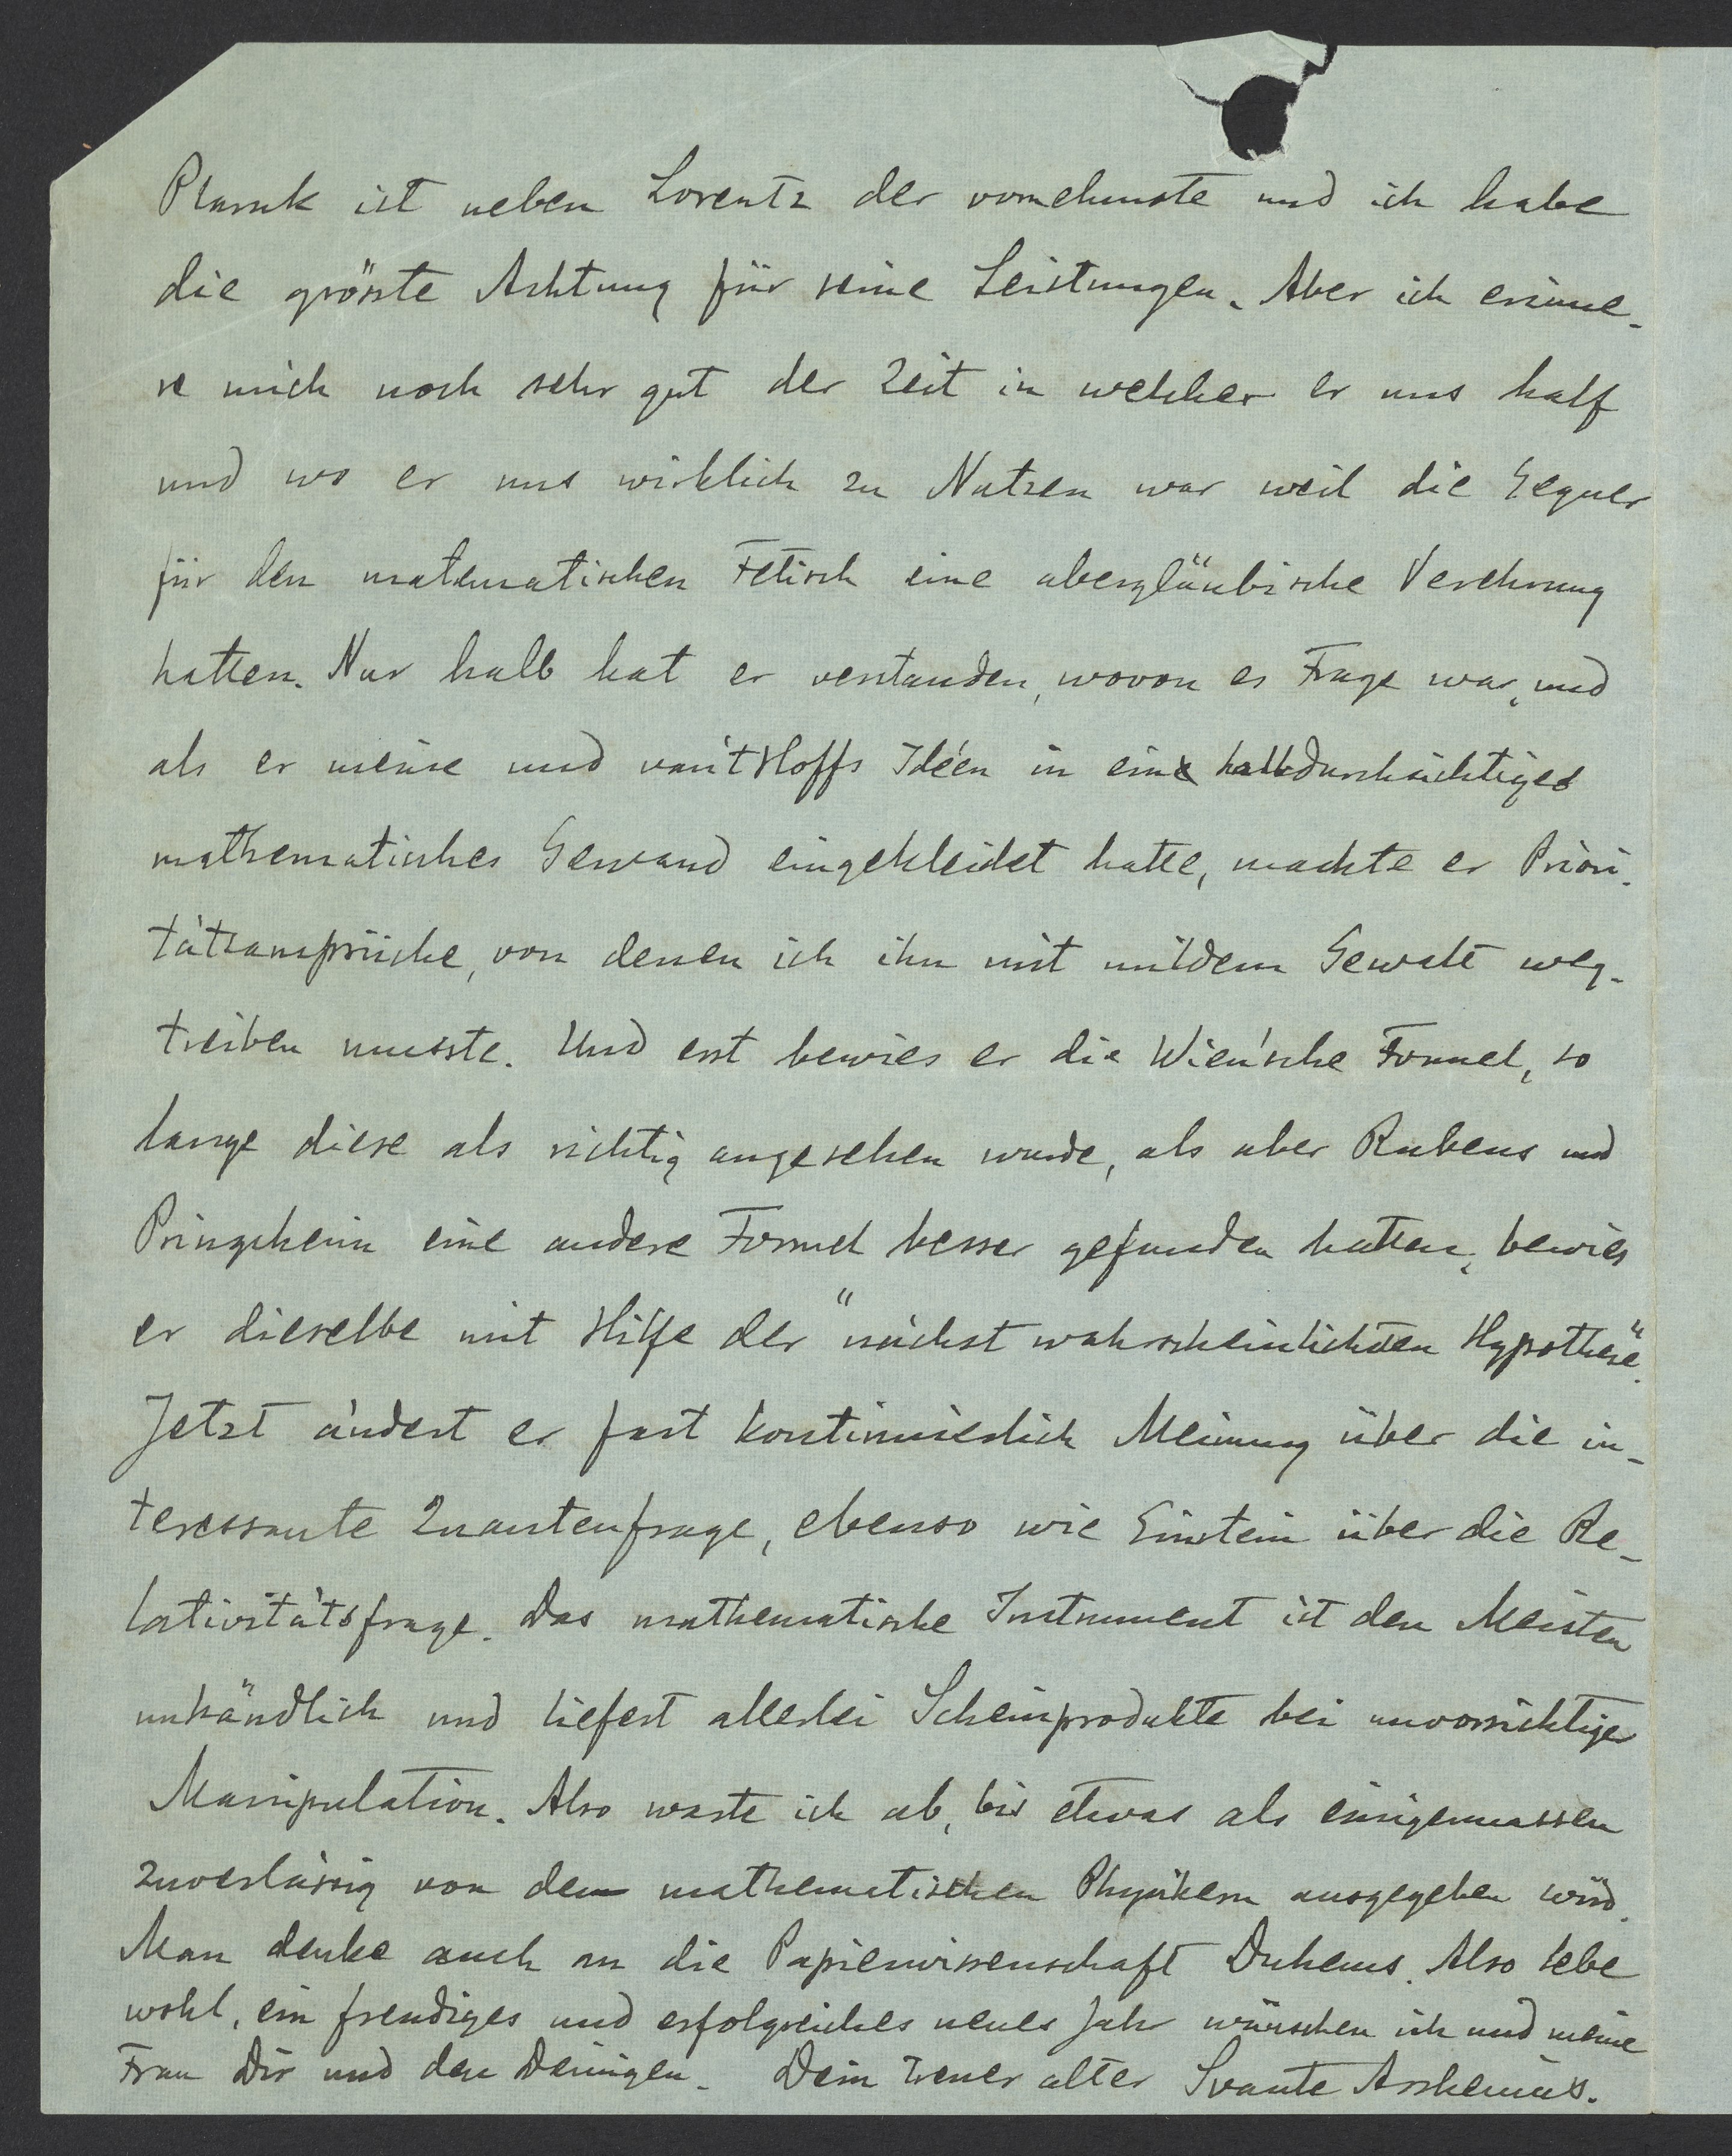 Planck ist neben Lorentz der vornehmste und ich habe
die grösste Achtung für seine Leistungen. Aber ich erinne-
re mich noch sehr gut der Zeit in welcher er uns half
und wo er uns wirklich zu Nutzen war weil die Gegner
für den matematischen Fetisch eine abergläubische Verehrung
hatten. Nur halb hat er verstanden, wovon es Frage war, und
als er meine und van't Hoffs Idéen in ein halbdurchsichtiges
mathematisches Gewand eingekleidet hatte, machte er Priori-
tätsansprüche, von denen ich ihn mit mildem Gewalt weg-
treiben musste. Und erst bewies er die Wien'sche Formel, so
lange diese als richtig angesehen wurde, als aber Rubens und
Pringsheim eine andere Formel besser gefunden hatten, bewies
er dieselbe mit Hilfe der "nächst wahrscheinlichsten Hypothese".
Jetzt ändert er fast kontinuierlich Meinung über die in-
teressante Quantenfrage, ebenso wie Einstein über die Re-
lativitätsfrage. Das mathematische Instrument ist den Meisten
unhändlich und liefert allerlei Scheinprodukte bei unvorsichtiger
Manipulation. Also warte ich ab, bis etwas als einigermassen
zuverlässig von den mathematischen Physikern ausgegeben wird.
Man denke auch an die Papierwissenschaft Duhems. Also lebe
wohl, ein freudiges und erfolgreiches neues Jahr wünschen ich und meine
Frau Dir und den Deinigen. Dein treuer alter Svante Arrhenius.